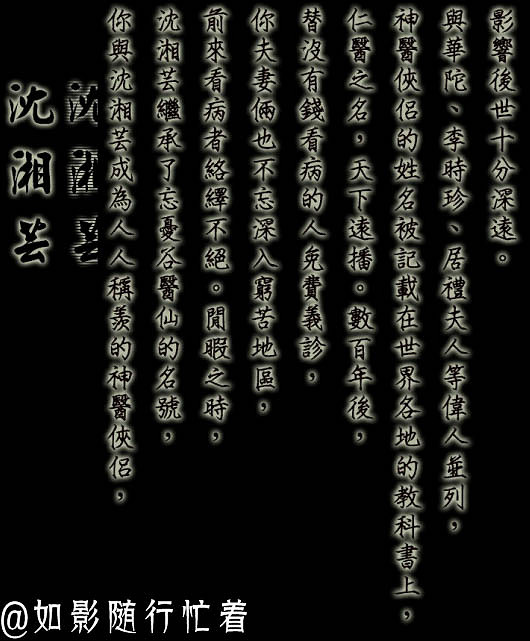 沈湘芸
沈湘芸
你與沈湘芸成為人人稱羨的神醫俠侶，
沈湘芸繼承了忘憂谷醫仙的名號，
前來看病者絡繹不絕。閒暇之時，
你夫妻倆也不忘深入窮苦地區，
替沒有錢看病的人免費義診，
仁醫之名，天下遠播。數百年後，
神醫俠侶的姓名被記載在世界各地的教科書上，
與華陀、李時珍、居禮夫人等偉人並列，
影響後世十分深遠。
@如影随行忙着